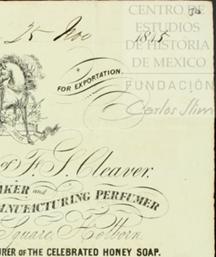 CENTRO DE
ESTUDIOS
DE HISTORIA
DE MÉXICO
FUNDACIÓN
Carlos Slim
25 Nov 1845
FOR EXPORTATION.
of F. S. Cleaver.
AKER and
ANUFACTURING PERFUMER
Square, Holborn.
URER OF THE CELEBRATED HONEY SOAP.